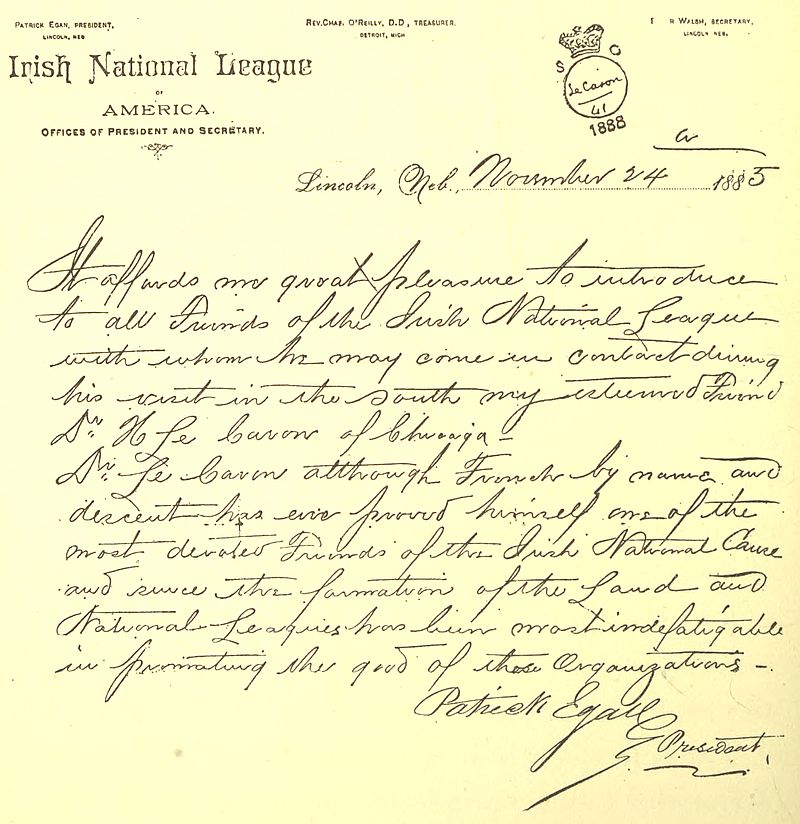 PATRICK EGAN, PRESIDENT,
LINCOLN, NEB
REV. CHAS. O'REILLY, D.D, TREASURER.
DETROIT, MICH
R WALSH, SECRETARY,
LINCOLN NEB.
Irish National League
OF
AMERICA.
OFFICES OF PRESIDENT AND SECRETARY.
S C
Le Caron
41
1888
a
Lincoln, Neb., November 24 1885
It affords me great pleasure to introduce
to all Friends of the Irish National League
with whom he may come in contact during
his visit in the south my esteemed Friend
Dr. H Le Caron of Chicago –
Dr. Le Caron although French by name and
descent has ever proved himself one of the
most devoted Friends of the Irish National Cause
and since the formation of the Land and
National Leagues has been most indefatigable
in promoting the good of those Organizations –.
Patrick Egan
President,